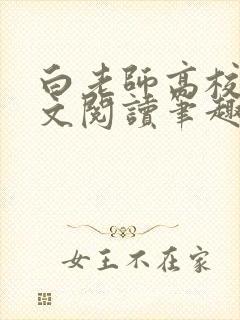 白老師高校
文閱讀筆趣
女王不在家